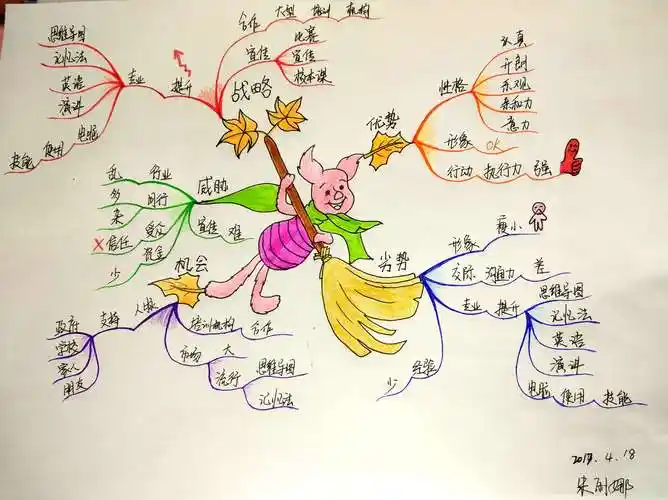 战略
合作
大型 培训 机构
宣传
比赛
宣传
校本课
提升
专业
思维导图
记忆法
英语
演讲
电脑
使用
技能
优势
性格
认真
开朗
乐观
亲和力
意力
形象 OK
行动 执行力 强
威胁
行业
乱
同行
多
受众
杂
资金
少
X 信任
宣传 难
机会
人脉
支持
政府
学校
家人
朋友
培训机构 合作
市场 大
流行
思维导图
记忆法
劣势
形象
瘦小
交际 沟通力 差
专业 提升
思维导图
记忆法
英语
演讲
电脑 使用 技能
经验
少
2017.4.18